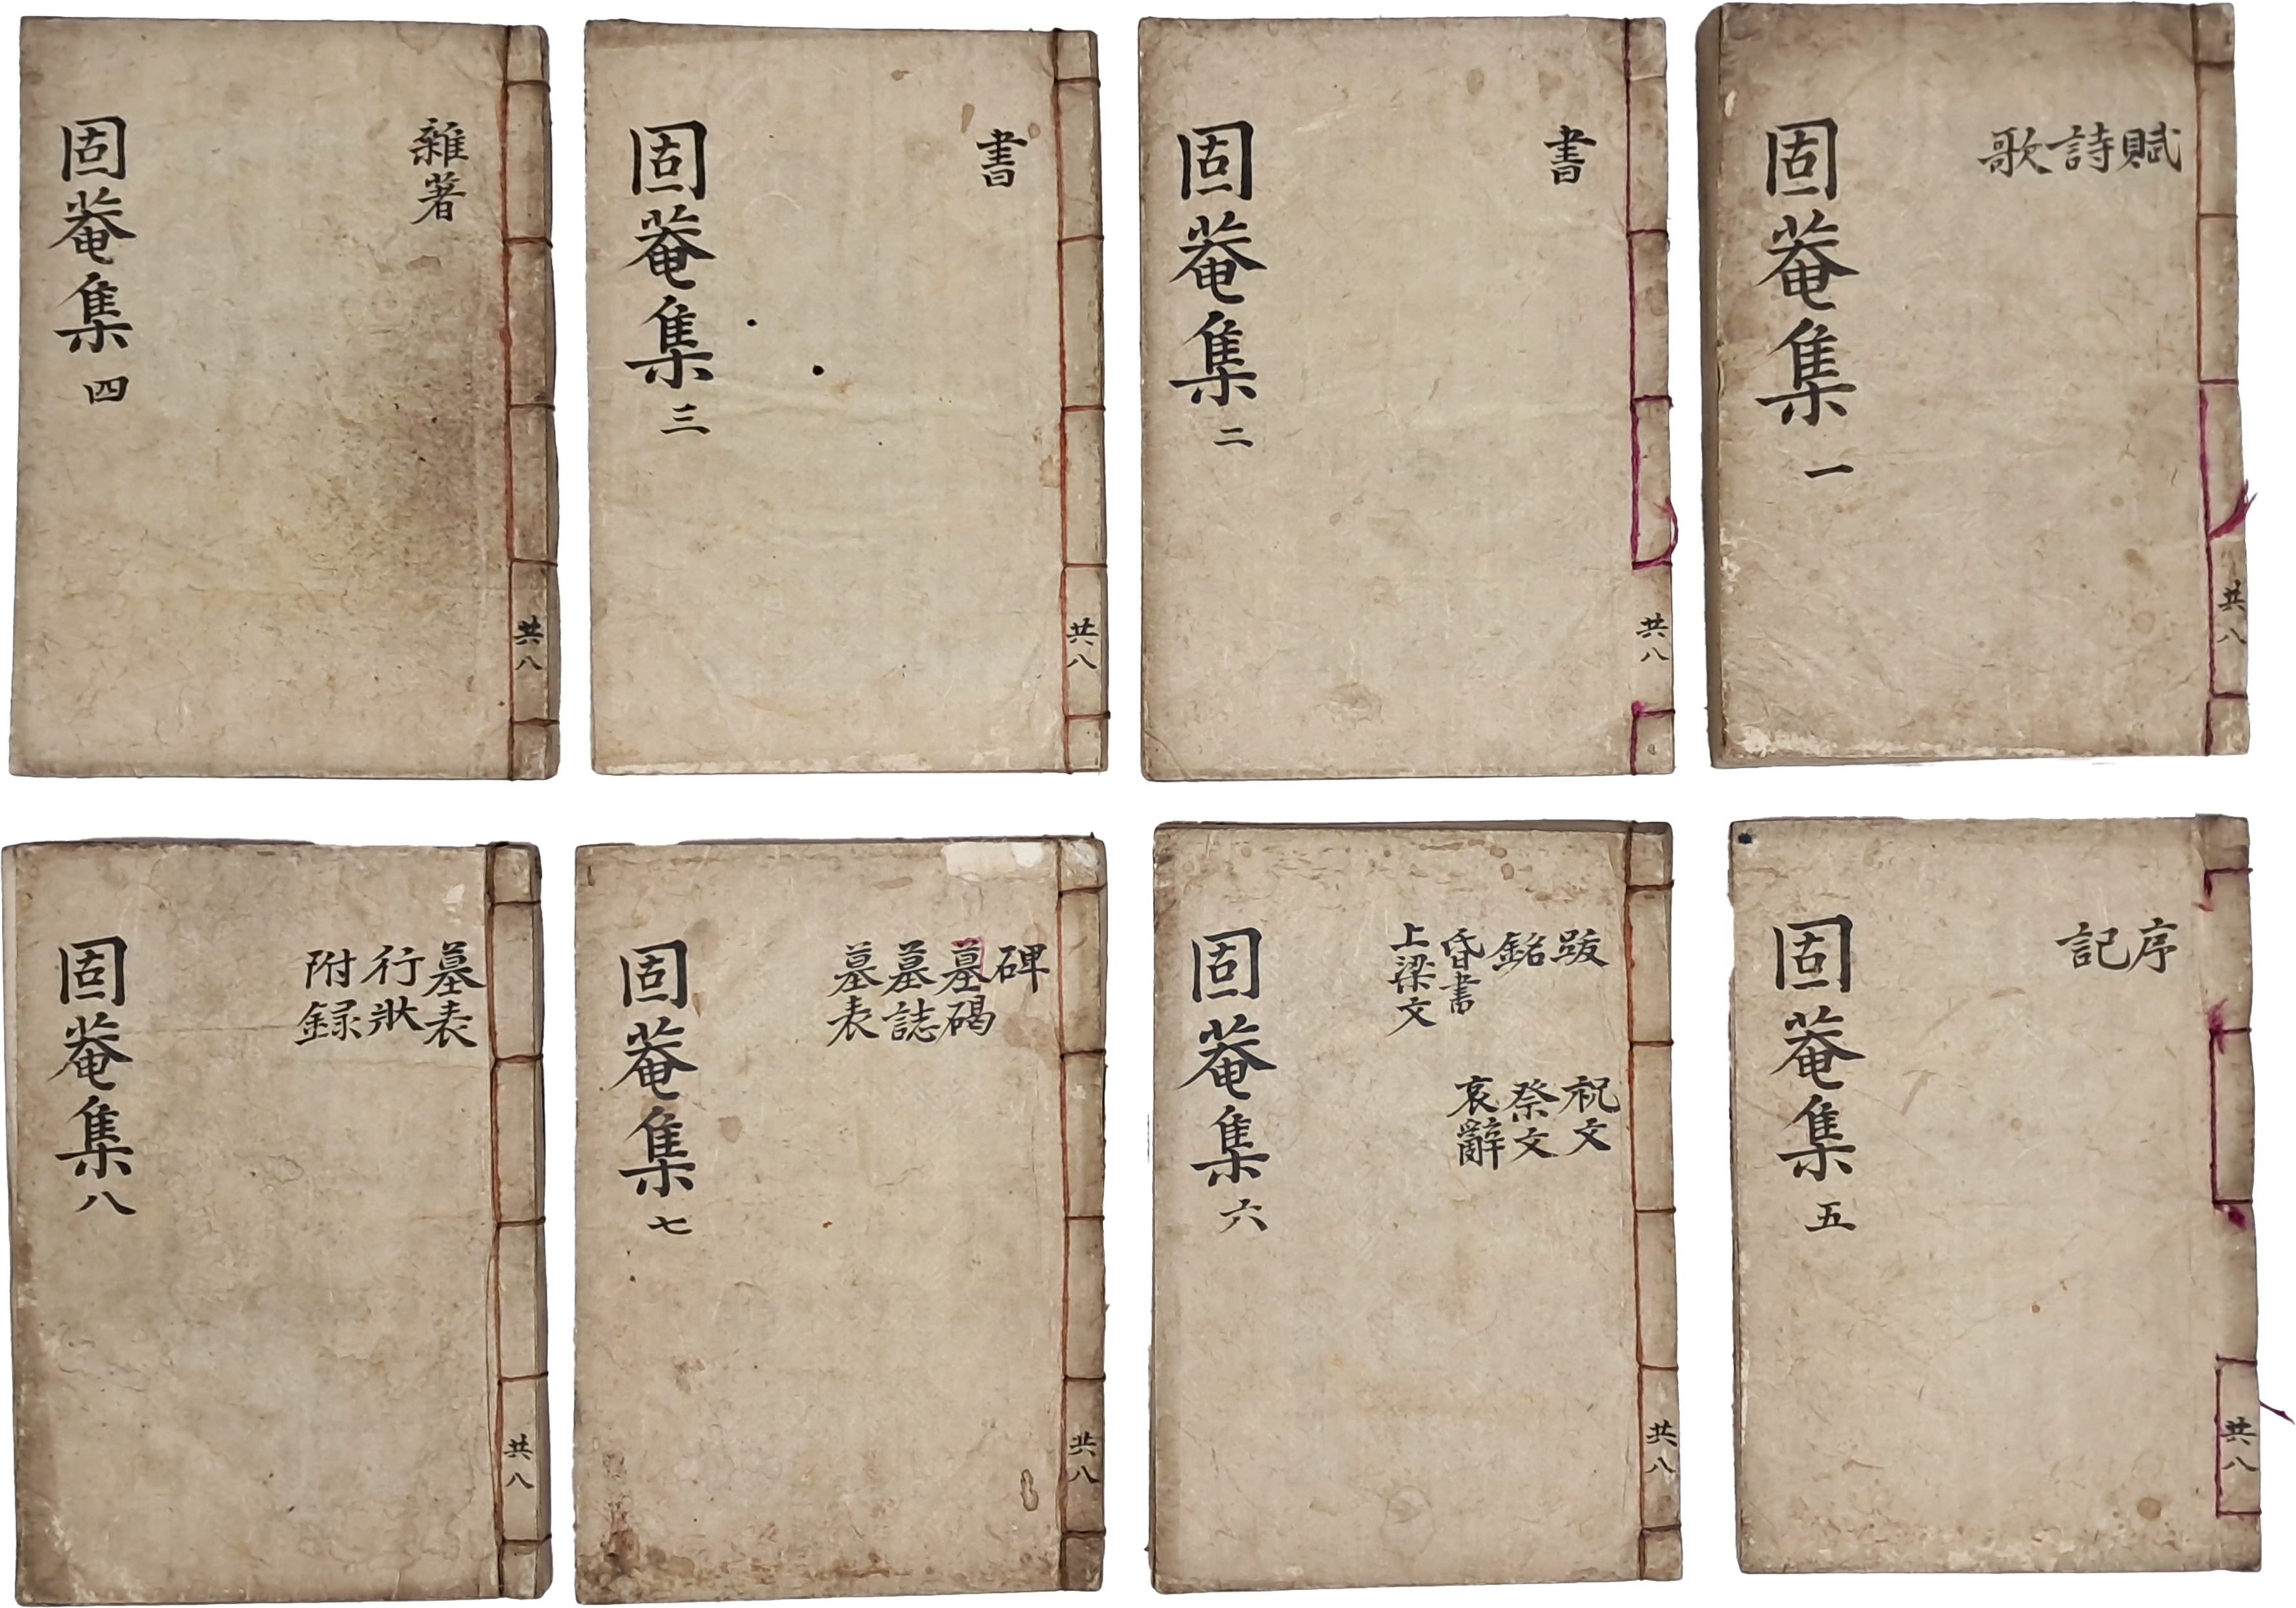 賦
詩
歌
固菴集 一
共八
書
固菴集 二
共八
書
固菴集 三
共八
雜著
固菴集 四
共八
序
記
固菴集 五
共八
跋
銘
昏書
上梁文
祝文
祭文
哀辭
固菴集 六
共八
碑
墓碣
墓誌
墓表
固菴集 七
共八
墓表
行狀
附録
固菴集 八
共八